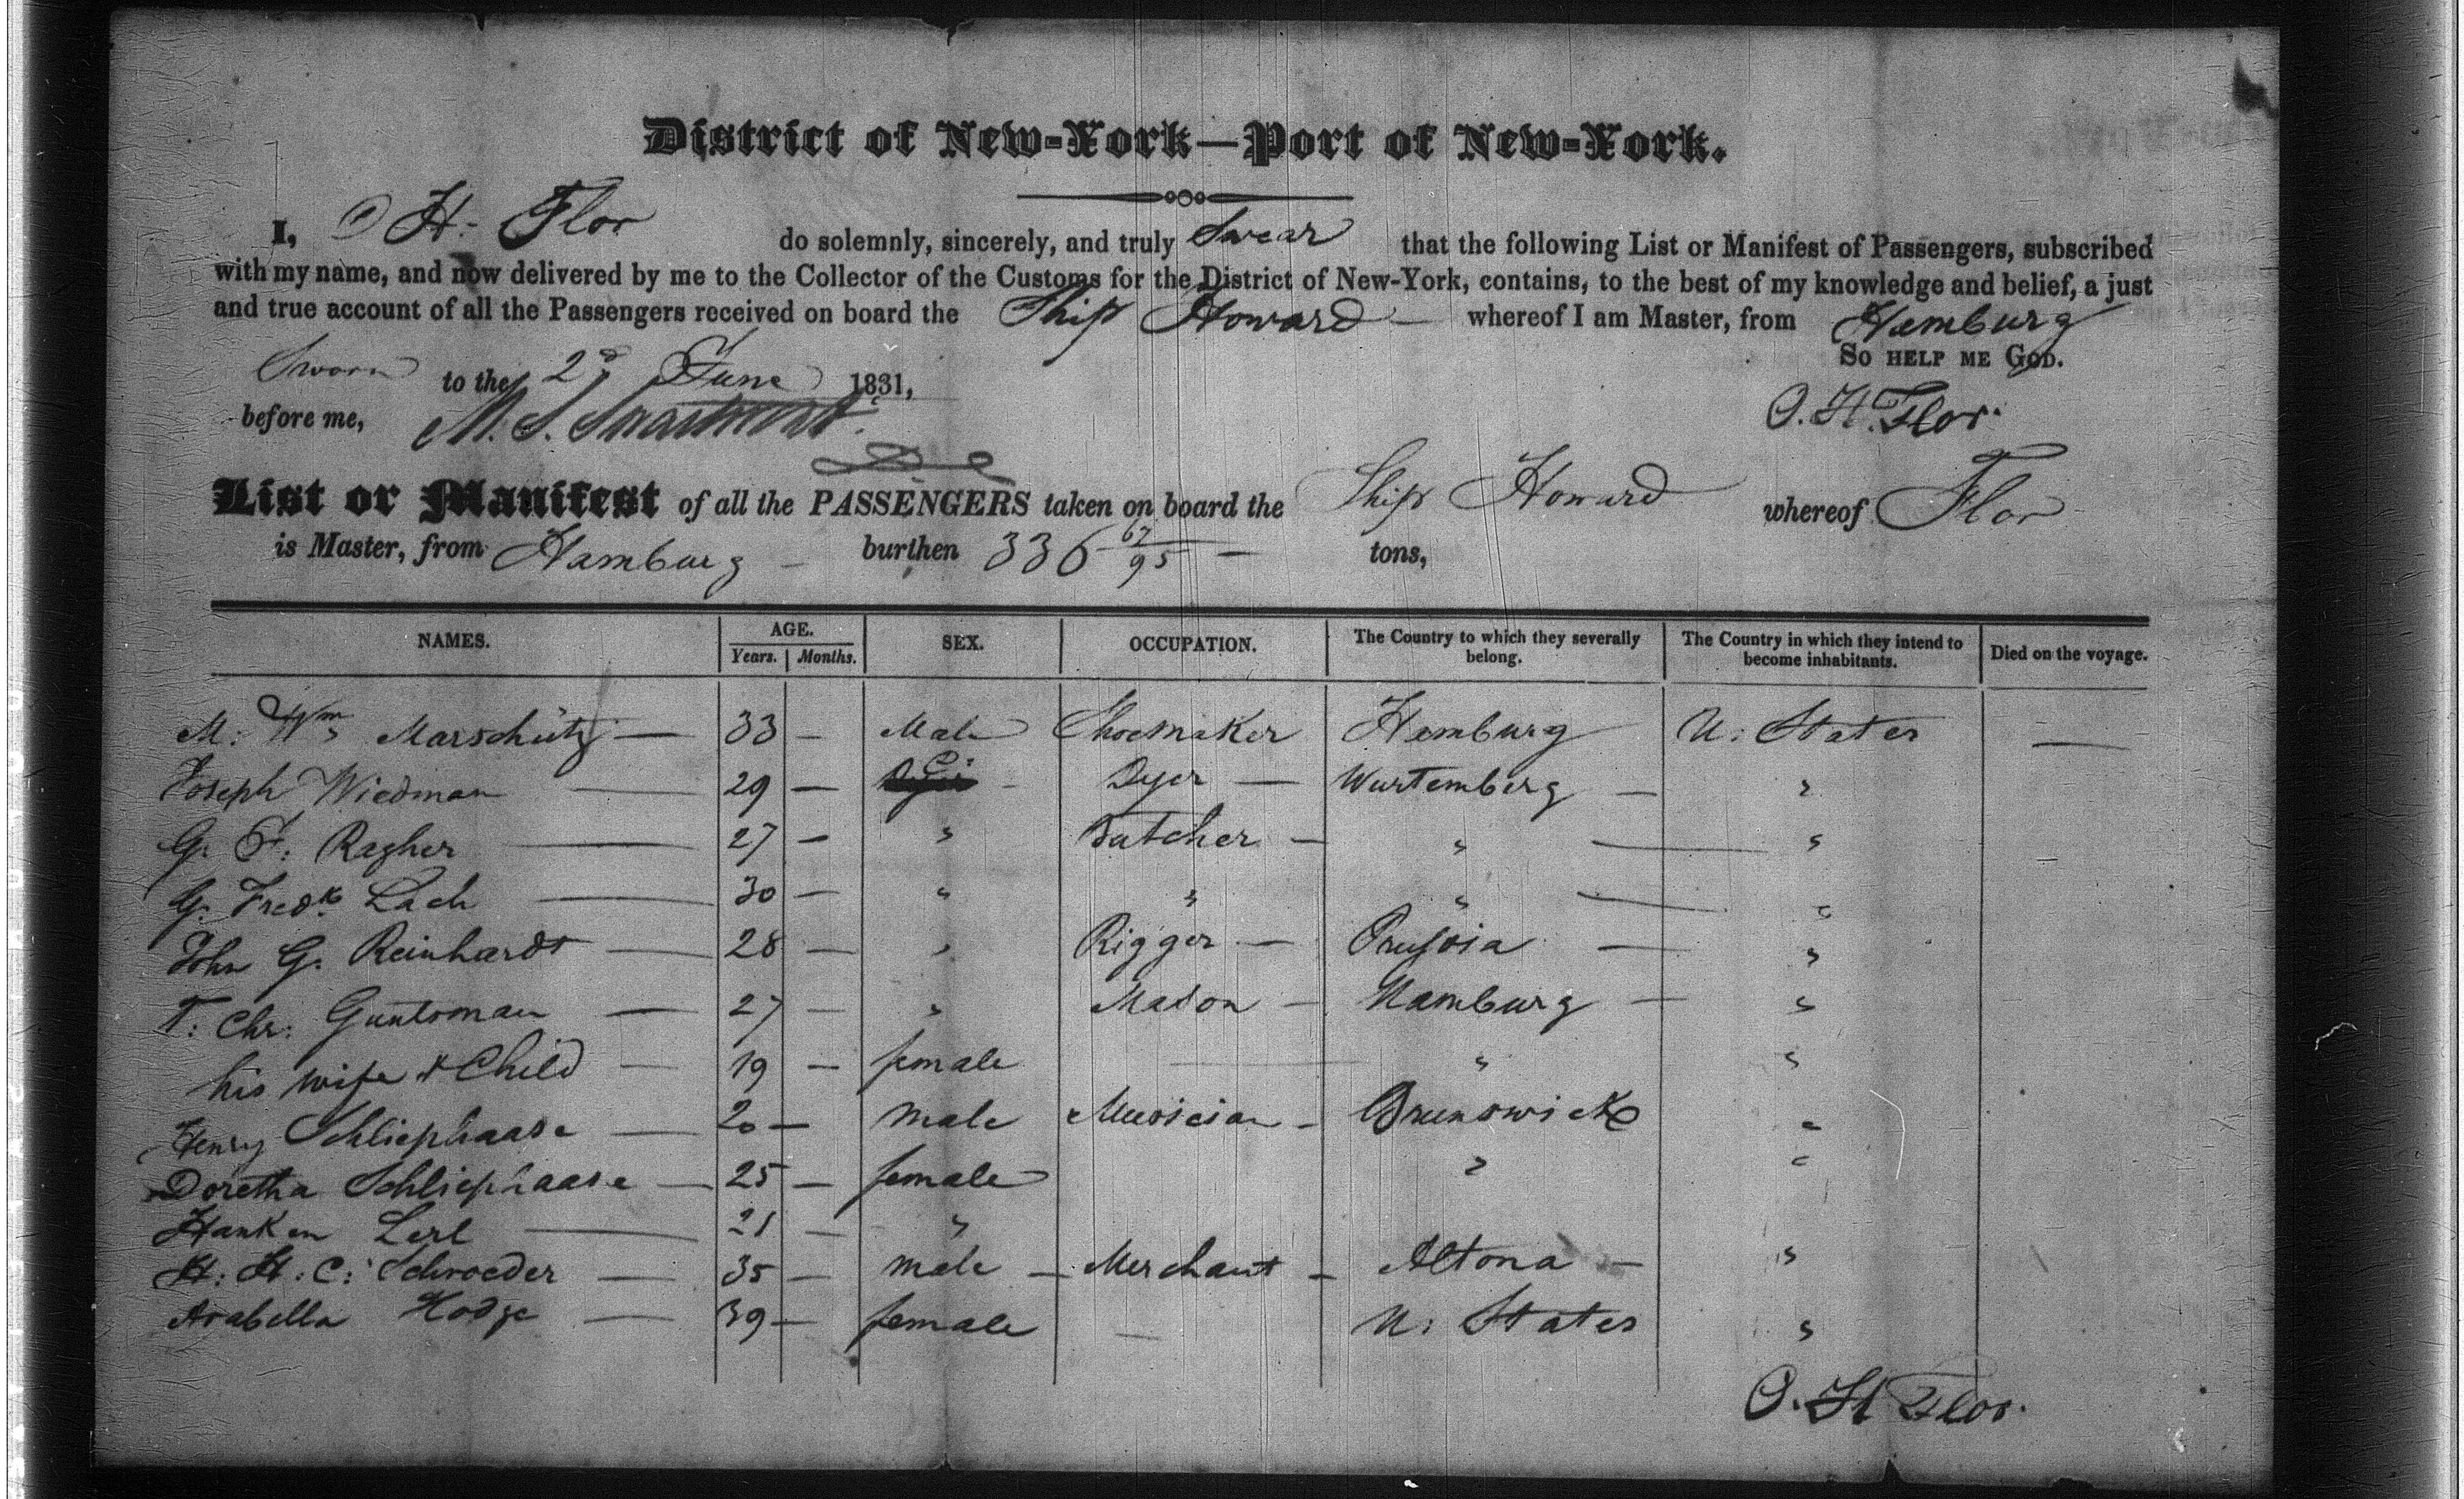 District of New-York—Port of New-York.
I, O H. Flor do solemnly, sincerely, and truly Swear that the following List or Manifest of Passengers, subscribed
with my name, and now delivered by me to the Collector of the Customs for the District of New-York, contains, to the best of my knowledge and belief, a just
and true account of all the Passengers received on board the Ship Howard — whereof I am Master, from Hamburg
So help me God.
Sworn to the 2d June 1831,
before me, M. S.
O. H. Flor.
List or Manifest of all the PASSENGERS taken on board the Ship Howard whereof Flor
is Master, from Hamburg — burthen 336 67/95 — tons,
NAMES. AGE. SEX. OCCUPATION. The Country to which they severally belong. The Country in which they intend to become inhabitants. Died on the voyage.
Years. Months.
M: Wm Marschütz — 33 — Male Shoemaker Hamburg U: States —
Joseph Wiedman — 29 — Dyer — Wurtemberg — "
G. F. Ragher — 27 — " Butcher — " — "
G. Fredk Lach — 30 — " " " — "
John G. Reinhardt — 28 — " Rigger — Prussia — "
T: Chr: Guntsman — 27 — " Mason — Hamburg — "
his wife & Child — 19 — female " "
Henry Schliephaase — 20 — male Musician — Brunswick "
Doretha Schliephaase — 25 — female " "
Hanken Lerl — 21 — "
H: H. C: Schroeder — 35 — male — Merchant — Altona — "
Arabella Hodge — 39 — female — U: States "
O. H Flor.